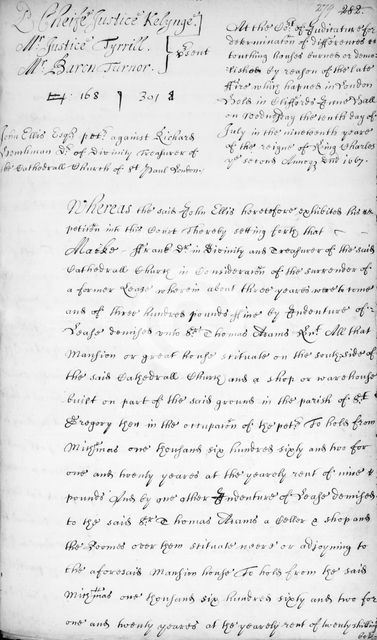 Cheife Justice Kelynge
Mr Justice Tyrrill
Mr Baron Turnor
prsent
168 301
279 282
At the Cort of Judicature for
determinacon of differences
touching houses burned or demo
lished by reason of the late
ffire which hapned in London
held in Cliffords Inne Hall
on Wednesday the tenth day of
July in the nineteenth yeare
of the reigne of King Charles
ye second Annoqz dni 1667
John Ellis Esqr petr against Richard
Dr of Divinity Treasurer of
the Cathedrall Church of St Paul London
Whereas the said John Ellis heretofore exhibited his
peticon into this Court Thereby setting forth that
Macke ffranc Dr in Divinity and Treasurer of the said
Cathedrall Church in Consideracon of the surrender of
a former Lease wherein about three yeares were to come
and of three hundred pounds ffine by Indenture of
Lease demised unto Sr Thomas Adams Knt All that
Mansion or great house scituate on the southside of
the said Cathedrall Church and a shop or warehouse
built on part of the said ground in the parish of St
Gregory then in the occupacon of the petr To hold from
Michmas one thousand six hundred sixty and two for
one and twenty yeares at the yearely rent of nine
pounds And by one other Indenture of Lease demised
to the said Sr Thomas Adams a Celler & shop and
the Roomes over them scituate neere or adjoyning to
the aforesaid Mansion house To hold from the said
Michmas one thousand six hundred sixty and two for
one and twenty yeares at the yearely rent of twenty shillings